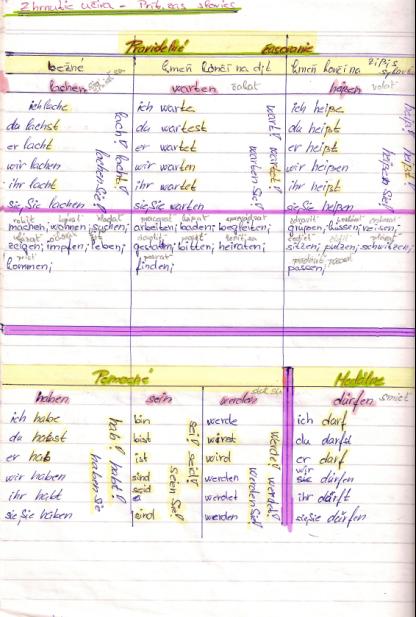 Zhrnutie učiva - Prít. čas slovies
Pravidelné časovanie
bežné kmeň končí na d/t kmeň končí na
lachen warten čakať heißen volať
ich lache ich warte ich heiße
du lachst du wartest du heißt
er lacht er wartet er heißt
wir lachen wir warten wir heißen
ihr lacht ihr wartet ihr heißt
sie, Sie lachen sie, Sie warten sie, Sie heißen
lach! lacht! lachen Sie!
wart! wartet! warten Sie!
heiß! heißt! heißen Sie!
machen, wohnen, suchen, arbeiten, baden, begleiten, grüßen, küssen, reisen,
zeigen, impfen, leben, bitten, heiraten, sitzen, putzen, schwitzen,
kommen, finden, passen,
Pomocné Modálne
haben sein werden dürfen smieť
ich habe bin werde ich darf
du habst bist wirst du darfst
er hab ist wird er darf
wir haben sind werden wir dürfen
ihr habt seid werdet ihr dürft
sie, Sie haben sind werden sie, Sie dürfen
hab! habt! haben Sie
sei! seid! seen Sie!
werde! werdet! werden Sie!